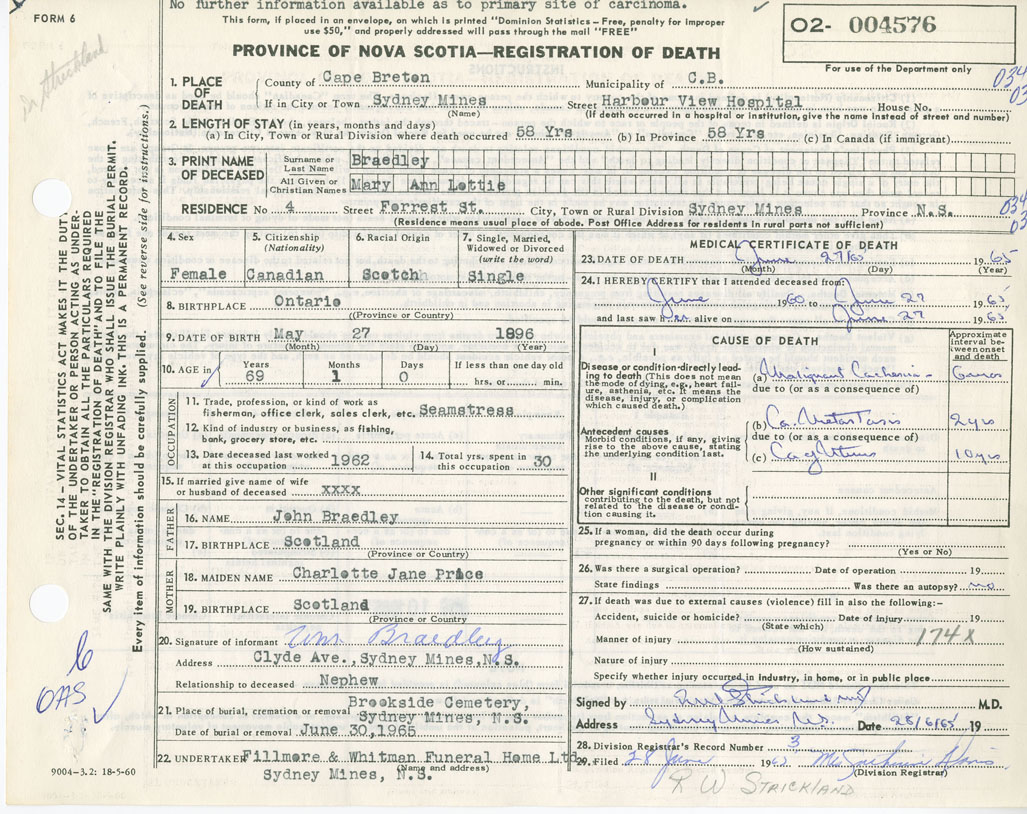 No further information available as to primary site of carcinoma.
FORM 6
This form, if placed in an envelope, on which is printed "Dominion Statistics – Free, penalty for improper
use $50," and properly addressed will pass through the mail "FREE"
02- 004576
For use of the Department only
PROVINCE OF NOVA SCOTIA—REGISTRATION OF DEATH
Dr Strickland
1. PLACE OF DEATH
County of Cape Breton Municipality of C.B.
If in City or Town Sydney Mines Street Harbour View Hospital House No.
(Name) (If death occurred in a hospital or institution, give the name instead of street and number)
034
2. LENGTH OF STAY (in years, months and days)
(a) In City, Town or Rural Division where death occurred 58 Yrs (b) In Province 58 Yrs (c) In Canada (if immigrant)
3. PRINT NAME OF DECEASED
Surname or Last Name Braedley
All Given or Christian Names Mary Ann Lottie
RESIDENCE No 4 Street Forrest St. City, Town or Rural Division Sydney Mines Province N.S.
034
(Residence means usual place of abode. Post Office Address for residents in rural parts not sufficient)
4. Sex Female
5. Citizenship (Nationality) Canadian
6. Racial Origin Scotch
7. Single, Married, Widowed or Divorced (write the word) Single
8. BIRTHPLACE Ontario
((Province or Country)
9. DATE OF BIRTH May 27 1896
(Month) (Day) (Year)
10. AGE in Years 69 Months 1 Days 0 If less than one day old hrs. or min.
OCCUPATION
11. Trade, profession, or kind of work as
fisherman, office clerk, sales clerk, etc. Seamstress
12. Kind of industry or business, as fishing,
bank, grocery store, etc.
13. Date deceased last worked at this occupation 1962
14. Total yrs. spent in this occupation 30
15. If married give name of wife
or husband of deceased xxxx
FATHER
16. NAME John Braedley
17. BIRTHPLACE Scotland
(Province or Country)
MOTHER
18. MAIDEN NAME Charlotte Jane Price
19. BIRTHPLACE Scotland
(Province or Country)
20. Signature of informant Wm Braedley
Address Clyde Ave., Sydney Mines, N.S.
Relationship to deceased Nephew
21. Place of burial, cremation or removal Brookside Cemetery,
Sydney Mines, N.S.
Date of burial or removal June 30, 1965
22. UNDERTAKER Fillmore & Whitman Funeral Home Ltd
(Name and address)
Sydney Mines, N.S.
MEDICAL CERTIFICATE OF DEATH
23. DATE OF DEATH June 27/65 1965
(Month) (Day) (Year)
24. I HEREBY CERTIFY that I attended deceased from:
June 1960 to June 27 1965
and last saw h er alive on June 27 1965
CAUSE OF DEATH
Approximate interval between onset and death
I
Disease or condition directly leading
to death (This does not mean
the mode of dying, e.g., heart failure,
asthenia, etc. It means the
disease, injury, or complication
which caused death.)
(a) Malignant Cachexia
due to (or as a consequence of)
Antecedent causes
Morbid conditions, if any, giving
rise to the above cause, stating
the underlying condition last.
(b) Ca. Metastasis 2 yrs
due to (or as a consequence of)
(c) Ca of Uterus 10 yrs
II
Other significant conditions
contributing to the death, but not
related to the disease or condition
causing it.
25. If a woman, did the death occur during
pregnancy or within 90 days following pregnancy?
(Yes or No)
26. Was there a surgical operation? Date of operation 19
State findings Was there an autopsy? no
27. If death was due to external causes (violence) fill in also the following:–
Accident, suicide or homicide? Date of injury 19
(State which)
Manner of injury 174X
(How sustained)
Nature of injury
Specify whether injury occurred in industry, in home, or in public place
Signed by R W Strickland M.D.
Address Sydney Mines N.S. Date 28/6/65 19
28. Division Registrar's Record Number 3
29. Filed 28 June
(Division Registrar)
R W STRICKLAND
SEC. 14 – VITAL STATISTICS ACT MAKES IT THE DUTY
OF THE UNDERTAKER OR PERSON ACTING AS UNDER-
TAKER TO OBTAIN ALL THE PARTICULARS REQUIRED
IN THE "REGISTRATION OF DEATH" AND TO FILE THE
SAME WITH THE DIVISION REGISTRAR WHO SHALL ISSUE THE BURIAL PERMIT.
WRITE PLAINLY WITH UNFADING INK. THIS IS A PERMANENT RECORD.
Every item of information should be carefully supplied. (See reverse side for instructions.)
6
OAS
9004-3.2: 18-5-60